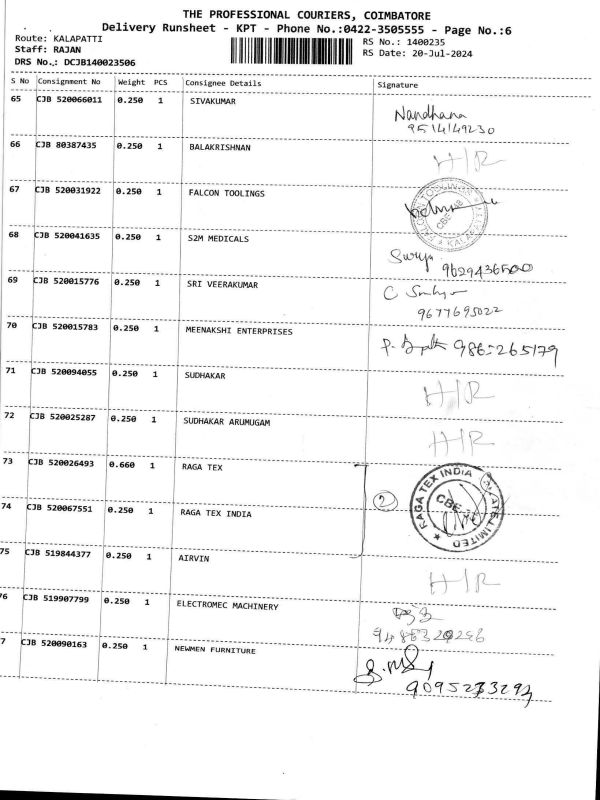 THE PROFESSIONAL COURIERS, COIMBATORE
Delivery Runsheet - KPT - Phone No.:0422-3505555 - Page No.:6
Route: KALAPATTI
Staff: RAJAN
DRS No.: DCJB140023506
RS No.: 1400235
RS Date: 20-Jul-2024
S No Consignment No Weight PCS Consignee Details Signature
65 CJB 520066011 0.250 1 SIVAKUMAR
Nandhana
9514149230
66 CJB 80387435 0.250 1 BALAKRISHNAN H/R
67 CJB 520031922 0.250 1 FALCON TOOLINGS
FALCON TOOLINGS
KALAPATTI
68 CJB 520041635 0.250 1 S2M MEDICALS
Surya
9629436500
69 CJB 520015776 0.250 1 SRI VEERAKUMAR
C
9677695022
70 CJB 520015783 0.250 1 MEENAKSHI ENTERPRISES
71 CJB 520094055 0.250 1 SUDHAKAR H/R
72 CJB 520025287 0.250 1 SUDHAKAR ARUMUGAM H/R
73 CJB 520026493 0.660 1 RAGA TEX
2
RAGA TEX INDIA PRIVATE LIMITED
74 CJB 520067551 0.250 1 RAGA TEX INDIA
75 CJB 519844377 0.250 1 AIRVIN H/R
76 CJB 519907799 0.250 1 ELECTROMEC MACHINERY
7 CJB 520090163 0.250 1 NEWMEN FURNITURE
9095273293